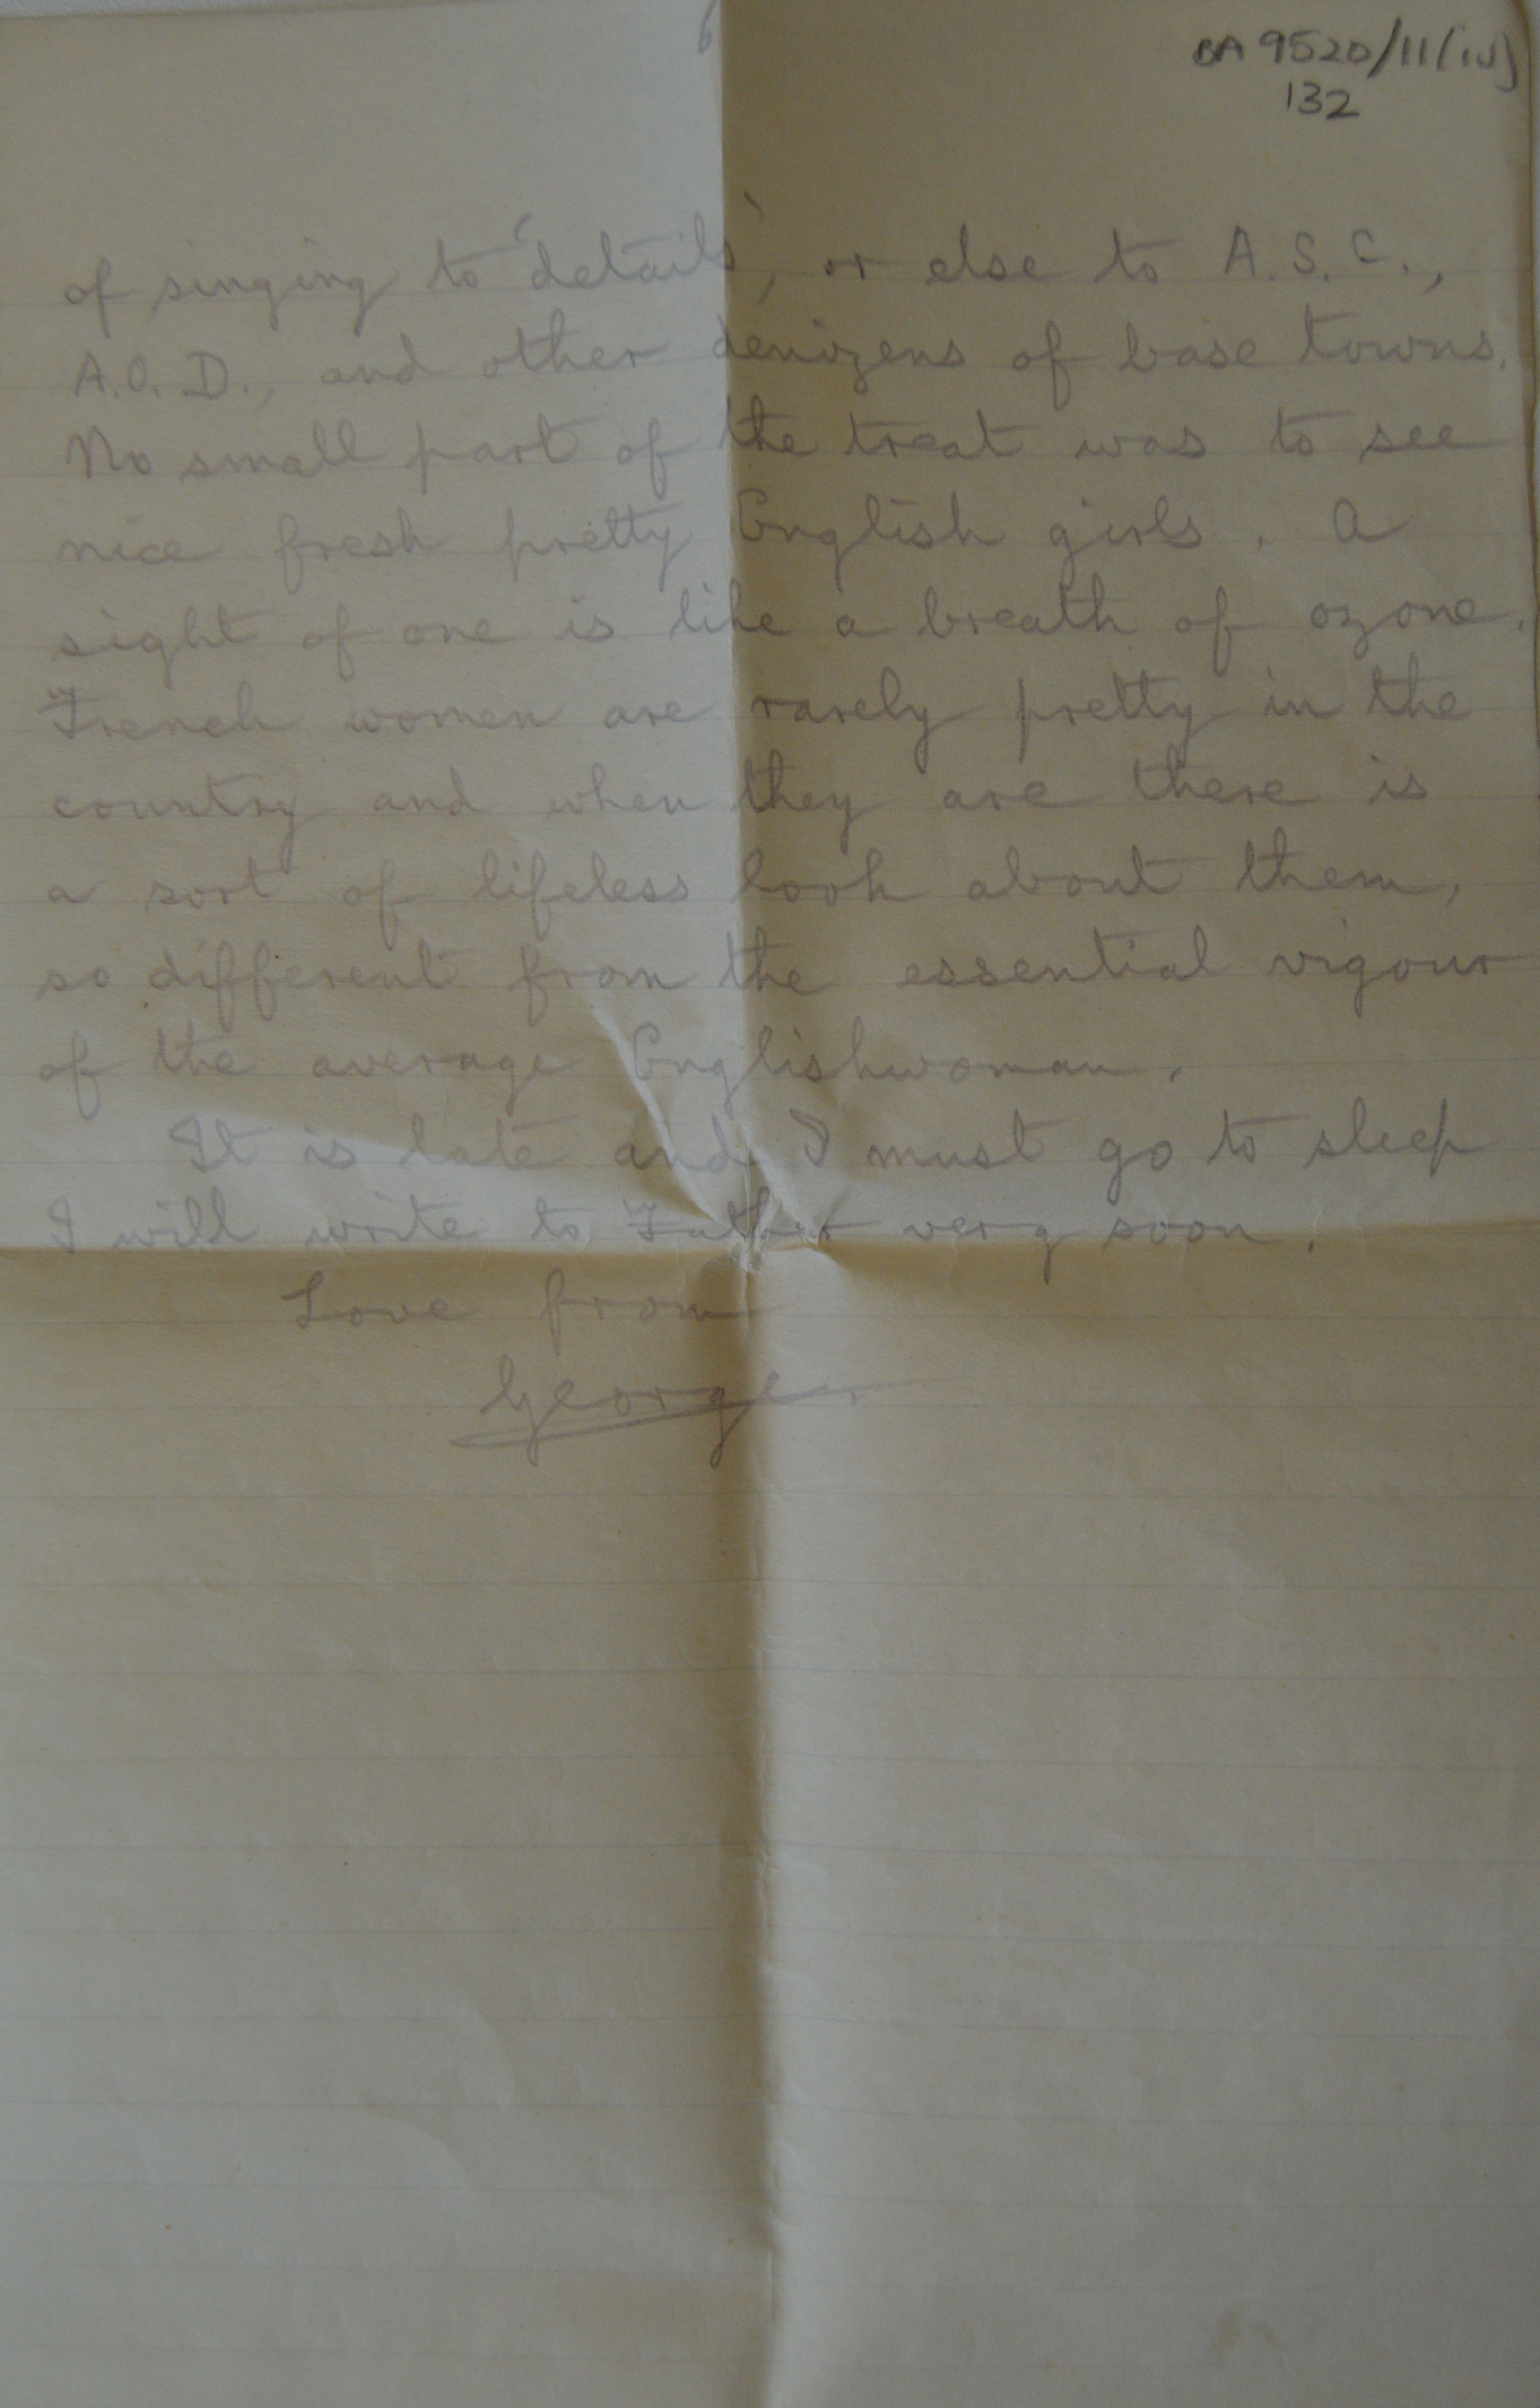 6
BA 9520/11(iv)
132
of singing to 'details', or else to A.S.C.,
A.O.D., and other denizens of base towns.
No small part of the treat was to see
nice fresh pretty English girls. A
sight of one is like a breath of ozone.
French women are rarely pretty in the
country and when they are there is
a sort of lifeless look about them,
so different from the essential vigour
of the average Englishwoman.
It is late and I must go to sleep
I will write to Father very soon.
Love from
George.